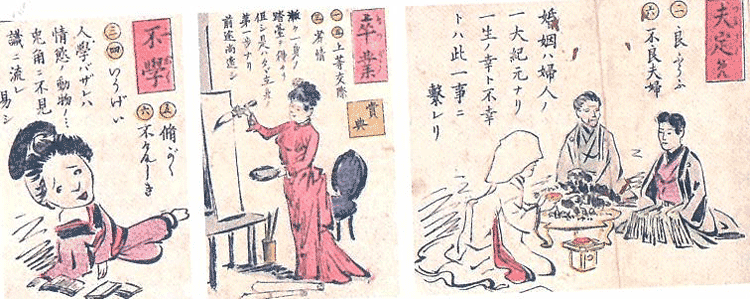 夫定め
二 良ふうふ
六 不良夫婦
婚姻ハ婦人ノ
一大紀元ナリ
一生ノ幸ト不幸
トハ此一事ニ
繋レリ
卒業
一五 上等交際
三
賞典
漸ク一身ノ
踏臺ヲ得タリ
但シ是ハ
第一歩ナリ
前途尚遠シ
不學
三四 いうげい
五 脩がく
六 不けんしき
人學バザレバ
情慾ノ動物
兎角ニ不見
識ニ流レ
易シ